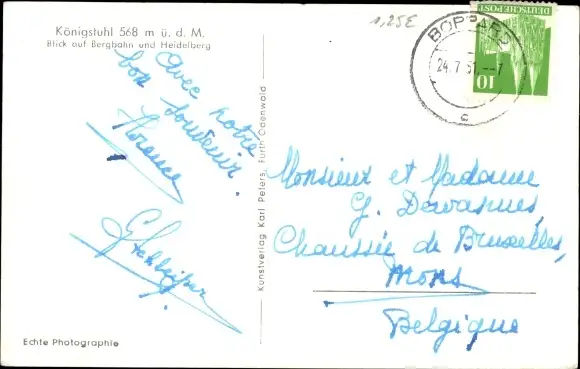 Königstuhl 568 m ü. d. M.
Blick auf Bergbahn und Heidelberg
avec notre
bon souvenir.
Florence
Echte Photographie
Kunstverlag Karl Peters, Fürth Odenwald
1,25E
BOPPARD
24.7.51.-7
c
DEUTSCHE POST
10
Monsieur et Madame
G.
Chaussée de Bruxelles,
Mons
Belgique